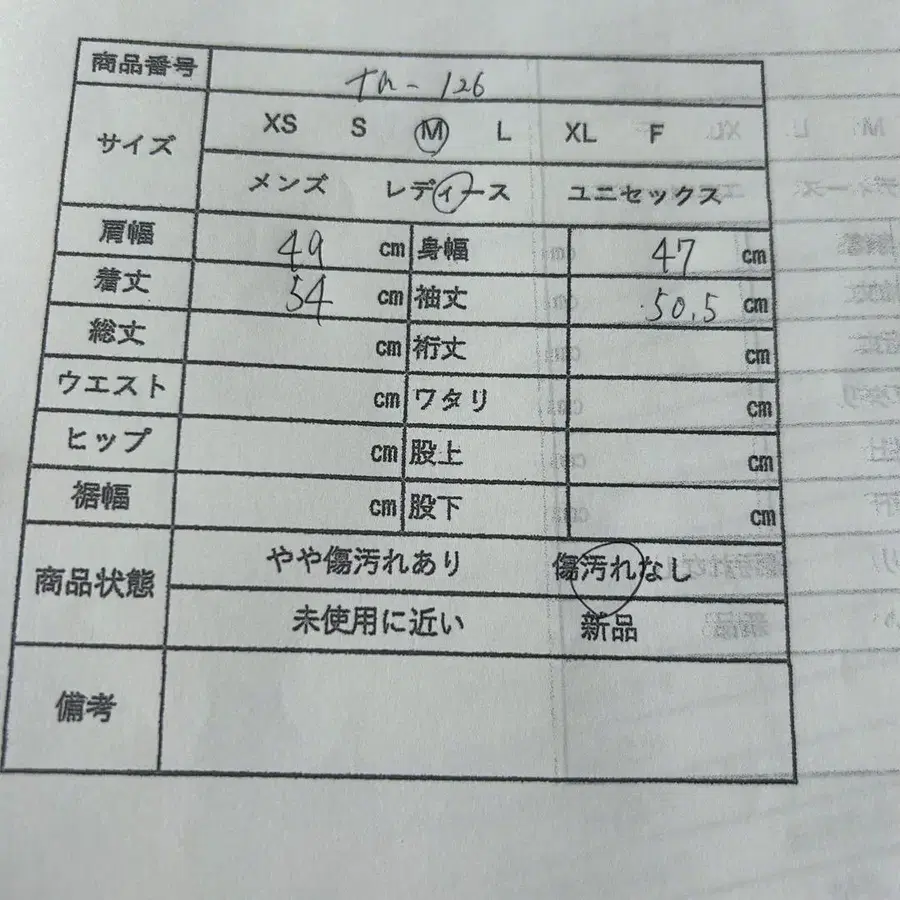 商品番号 tn-126
サイズ XS S M L XL F
メンズ レディース ユニセックス
肩幅 49 cm 身幅 47 cm
着丈 54 cm 袖丈 50.5 cm
総丈 cm 裄丈 cm
ウエスト cm ワタリ cm
ヒップ cm 股上 cm
裾幅 cm 股下 cm
商品状態 やや傷汚れあり 傷汚れなし
未使用に近い 新品
備考